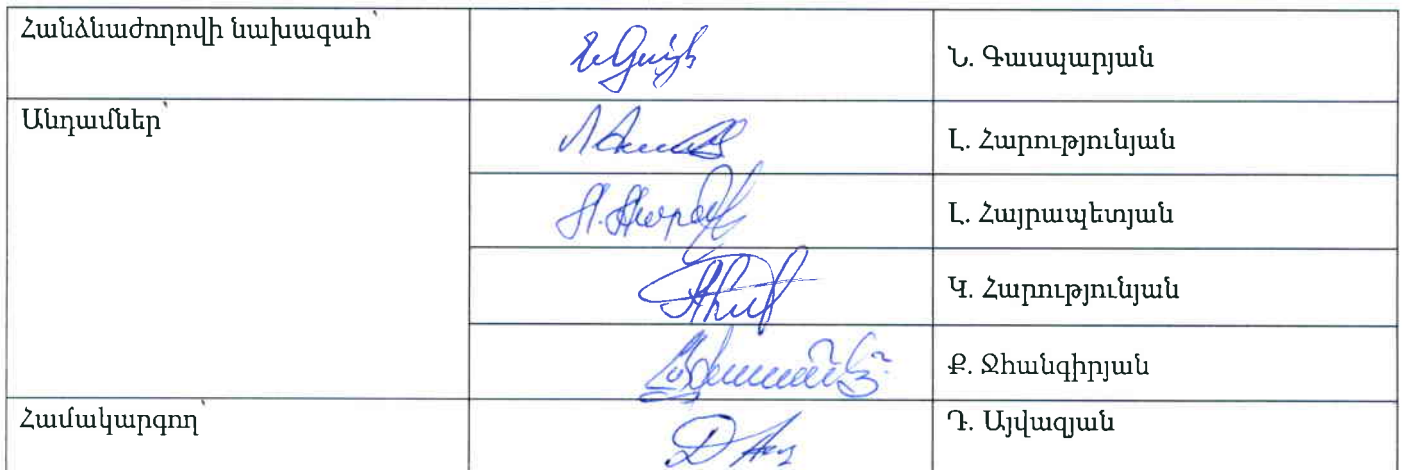 Հանձնաժողովի նախագահ՝
Ն. Գասպարյան
Անդամներ՝
Լ. Հարությունյան
Լ. Հայրապետյան
Կ. Հարությունյան
Ք. Ջհանգիրյան
Համակարգող՝
Դ. Այվազյան